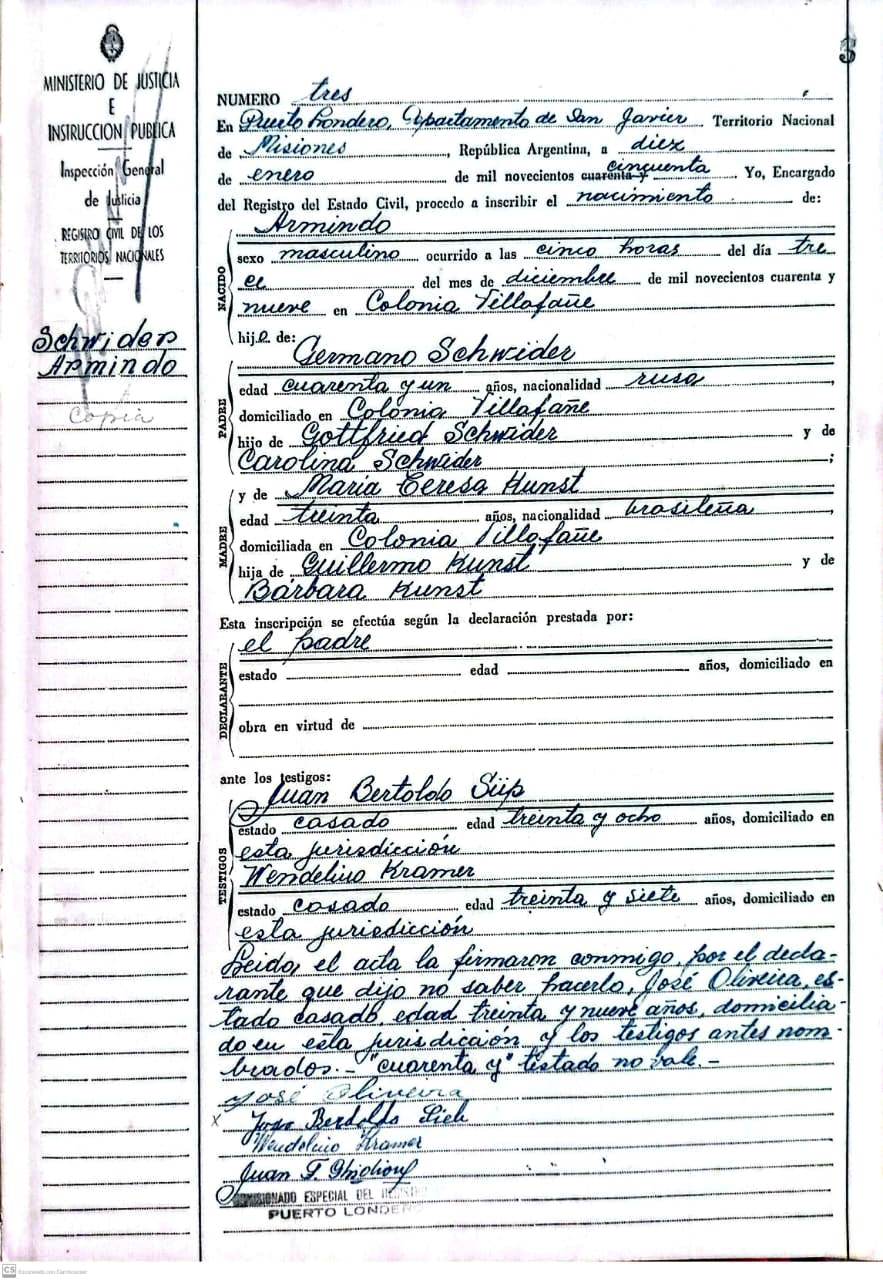 3
MINISTERIO DE JUSTICIA
E
INSTRUCCION PUBLICA
Inspección General
de Justicia
REGISTRO CIVIL DE LOS
TERRITORIOS NACIONALES
Schwider
Armindo
Copia
NUMERO tres
En Puerto Londero, Departamento de San Javier Territorio Nacional
de Misiones, República Argentina, a diez
de enero de mil novecientos cuarenta y cincuenta Yo, Encargado
del Registro del Estado Civil, procedo a inscribir el nacimiento de:
Armindo
NACIDO
sexo masculino ocurrido a las cinco horas del día tre
ce del mes de diciembre de mil novecientos cuarenta y
nueve en Colonia Villafañe
hijo de:
Germano Schwider
PADRE
edad cuarenta y un años, nacionalidad rusa,
domiciliado en Colonia Villafañe
hijo de Gottfried Schwider y de
Carolina Schwider;
y de Maria Teresa Kunst
MADRE
edad treinta años, nacionalidad brasileña,
domiciliada en Colonia Villafañe
hija de Guillermo Kunst y de
Bárbara Kunst
Esta inscripción se efectúa según la declaración prestada por:
el padre
DECLARANTE
estado edad años, domiciliado en
obra en virtud de
ante los testigos:
Juan Bertoldo Süp
TESTIGOS
estado casado edad treinta y ocho años, domiciliado en
esta jurisdicción
Wendelino Kramer
estado casado edad treinta y siete años, domiciliado en
esta jurisdicción
Leida el acta la firmaron conmigo, por el decla-
rante que dijo no saber hacerlo, José Oliveira, es-
tado casado, edad treinta y nueve años, domicilia-
do en esta jurisdicción y los testigos antes nom-
brados.- "cuarenta y" testado no vale.-
José Oliveira
x Bertoldo
Wendelino Kramer
Juan
COMISIONADO ESPECIAL DEL
PUERTO LONDERO
CS